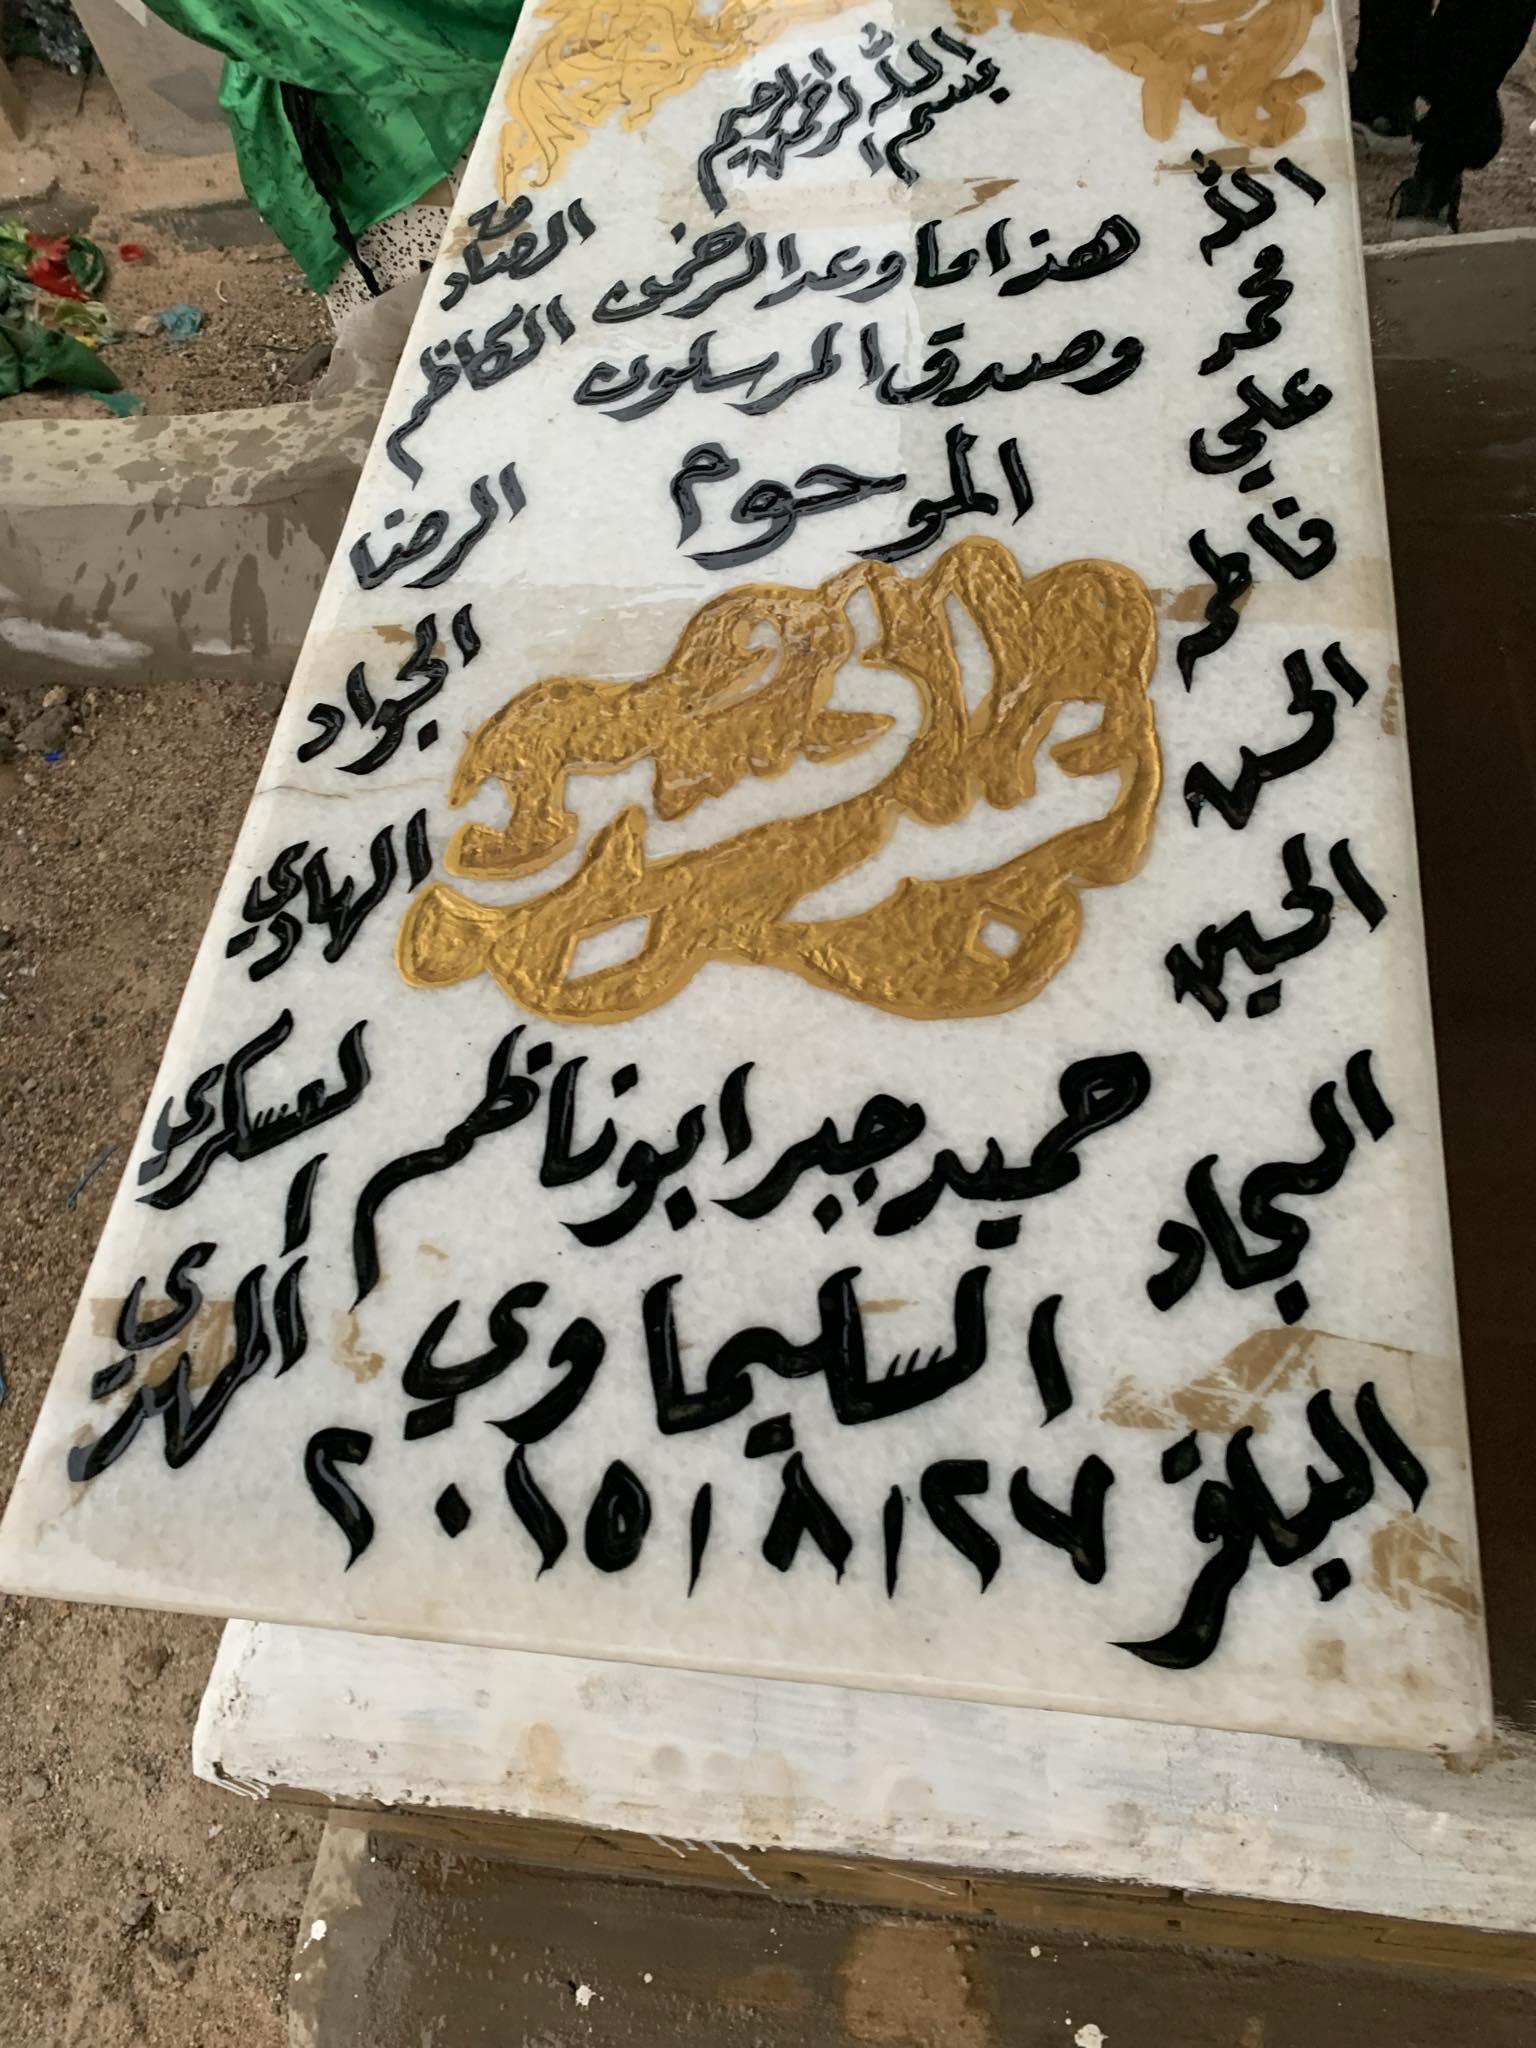 بسم الله الرحمن الرحيم
هذا ما وعد الرحمن
وصدق المرسلون
المرحوم
حميد جبر ابو ناظم
السليماوي
٢٠١٥/٨/٢٧
الله
محمد
علي
فاطمه
الحسن
الحسين
السجاد
الباقر
الصادق
الكاظم
الرضا
الجواد
الهادي
العسكري
المهدي